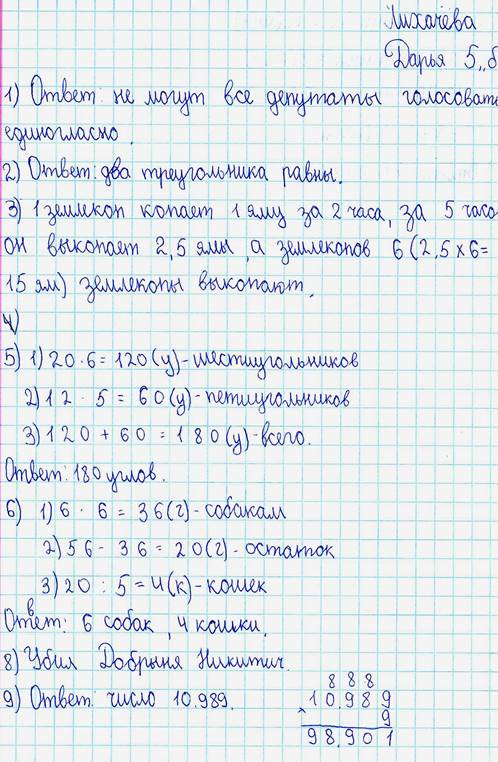 Лихачёва
Дарья 5 „б
1) Ответ: не могут все депутаты голосовать
единогласно.
2) Ответ: два треугольника равны.
3) 1 землекоп копает 1 яму за 2 часа, за 5 часо
он выкопает 2,5 ямы, а землекопов 6 (2,5 х 6 =
15 ям) землекопы выкопают.
4)
5) 1) 20 · 6 = 120 (у) - шестиугольников
2) 12 · 5 = 60 (у) - петиугольников
3) 120 + 60 = 180 (у) - всего.
Ответ: 180 углов.
6) 1) 6 · 6 = 36 (г) - собакам
2) 56 - 36 = 20 (г) - остаток
3) 20 : 5 = 4 (к) - кошек
Ответ: 6 собак, 4 кошки.
8) Убил Добрыня Никитич.
9) Ответ: число 10.989.
888
10.989
× 9
98.901